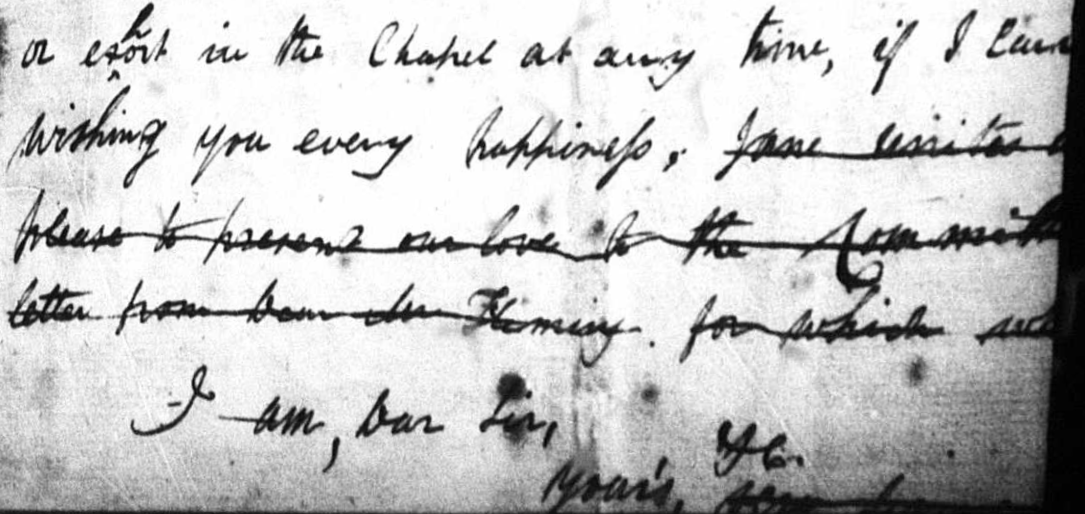 or exhort in the Chapel at any time, if I can
wishing you every happiness, Jane unites
please to present our love to the Committ
letter from Dear Mr Fleming. for which
I am, Dear Sir,
&c.
Yours,